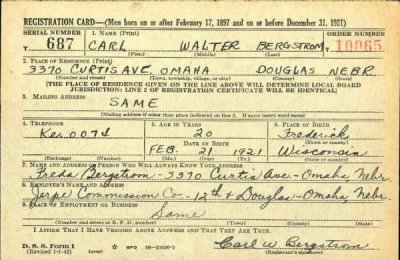 REGISTRATION CARD—(Men born on or after February 17, 1897 and on or before December 31, 1921)
SERIAL NUMBER 1. NAME (Print) ORDER NUMBER
687 CARL WALTER BERGSTROM 10065
(First) (Middle) (Last)
2. PLACE OF RESIDENCE (Print)
3370 CURTIS AVE. OMAHA DOUGLAS NEBR.
(Number and street) (Town, township, village, or city) (County) (State)
[THE PLACE OF RESIDENCE GIVEN ON THE LINE ABOVE WILL DETERMINE LOCAL BOARD
JURISDICTION; LINE 2 OF REGISTRATION CERTIFICATE WILL BE IDENTICAL]
3. MAILING ADDRESS
SAME
[Mailing address if other than place indicated on line 2. If same insert word same]
4. TELEPHONE 5. AGE IN YEARS 6. PLACE OF BIRTH
Ken 0074 20 Frederick
DATE OF BIRTH (Town or county)
FEB. 21 1921 Wisconsin
(Exchange) (Number) (Mo.) (Day) (Yr.) (State or country)
7. NAME AND ADDRESS OF PERSON WHO WILL ALWAYS KNOW YOUR ADDRESS
Freda Bergstrom - 3370 Curtis Ave. - Omaha, Nebr.
8. EMPLOYER'S NAME AND ADDRESS
Jerpe Commission Co - 12th & Douglas - Omaha, Nebr.
9. PLACE OF EMPLOYMENT OR BUSINESS
Same
(Number and street or R. F. D. number) (Town) (County) (State)
I AFFIRM THAT I HAVE VERIFIED ABOVE ANSWERS AND THAT THEY ARE TRUE.
D. S. S. Form 1
(Revised 1-1-42) GPO 16-21630-2 Carl W. Bergstrom
(Registrant's signature)